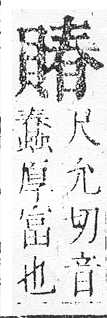 賰
尺允切音
蠢厚富也